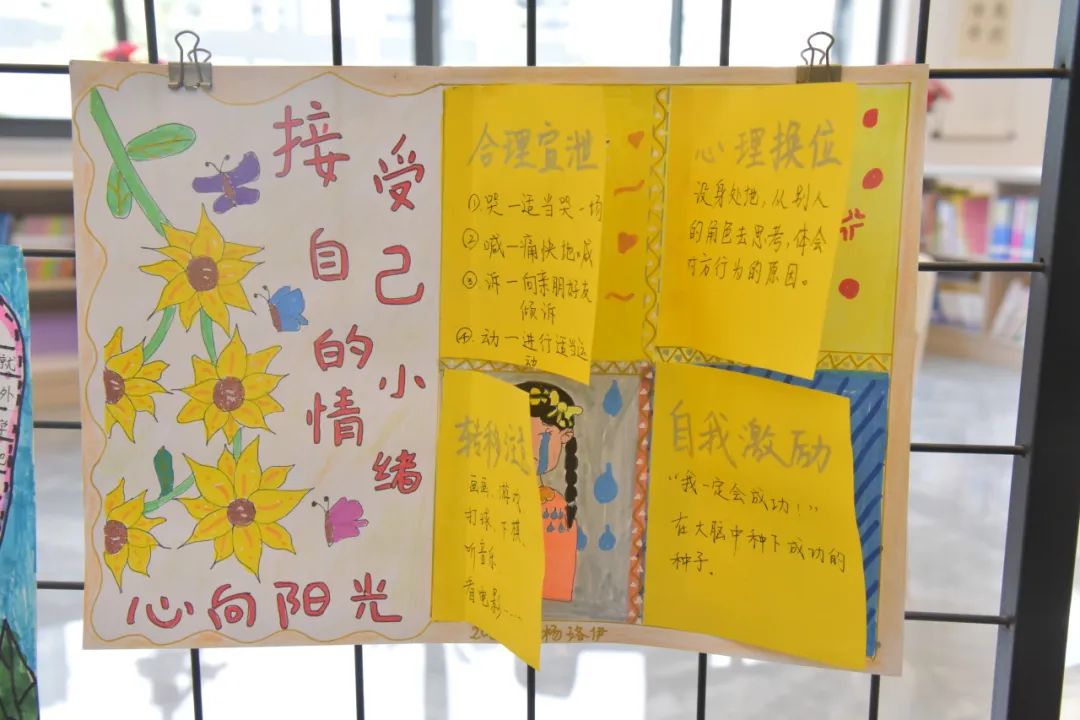 接受自己的小情绪
心向阳光
合理宣泄
①哭一适当哭一场
②喊一痛快地喊
③诉一向亲朋好友
倾诉
④动一进行适当运
动
心理换位
设身处地,从别人
的角色去思考,体会
对方行为的原因。
转移注
画画、游戏
打球、下棋、
听音乐
看电影……
自我激励
“我一定会成功!”
在大脑中种下成功的
种子.
杨珞伊
就
外